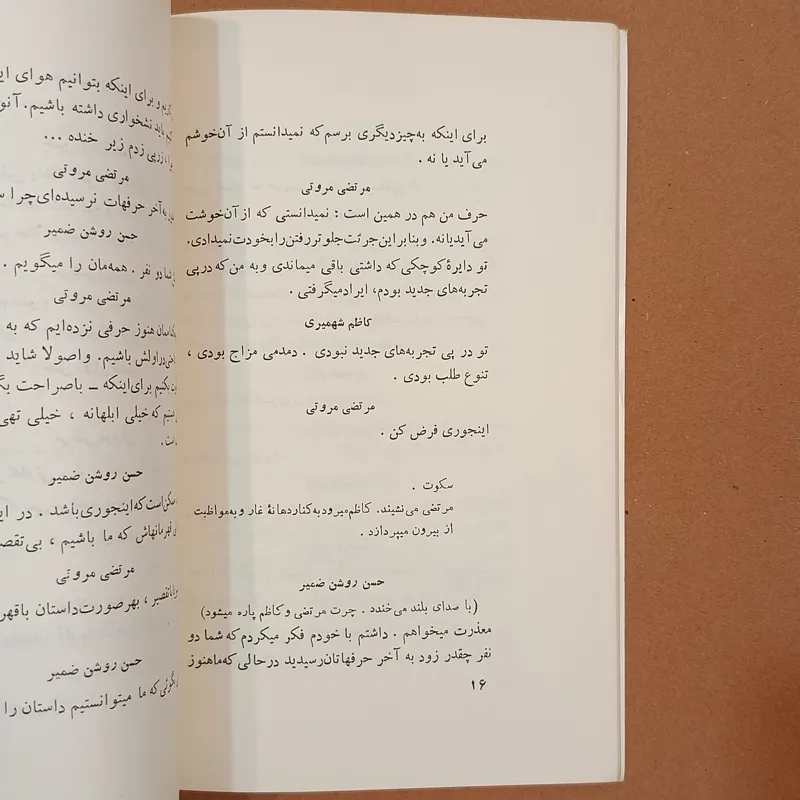 برای اینکه به‌چیزدیگری برسم‌که نمیدانستم از آن‌خوشم
می‌آید یا نه .
مرتضی مروتی
حرف من هم در همین است : نمیدانستی که ازآن‌خوشت
می‌آیدیانه. وبنابراین‌جرئت‌جلوتررفتن‌رابخودت‌نمیدادی.
تو دایرهٔ‌کوچکی‌که داشتی باقی میماندی وبه من‌که درپی
تجربه‌های جدید بودم، ایرادمیگرفتی .
کاظم شهمیری
تو در پی تجربه‌های جدید نبودی . دمدمی مزاج بودی ،
تنوع طلب بودی .
مرتضی مروتی
اینجوری فرض کن .
سکوت .
مرتضی می‌نشیند. کاظم‌میرودبه‌کناردهانهٔ غار وبه‌مواظبت
از بیرون میپردازد .
حسن روشن ضمیر
(با صدای بلند می‌خندد . چرت مرتضی وکاظم پاره میشود)
معذرت میخواهم . داشتم با خودم فکر میکردم‌که شما دو
نفر چقدر زود به آخر حرفهاتان‌رسیدید درحالی‌که‌ماهنوز
۱۶
و برای اینکه بتوانیم هوای
باید نشخواری داشته باشیم.
زدم زیر خنده ...
مرتضی مروتی
به‌آخر حرفهات نرسیده‌ای‌چرا
حسن روشن ضمیر
دو نفر . همه‌مان را میگویم .
مرتضی مروتی
هنوز حرفی نزده‌ایم که به
باشیم. واصولا شاید
بکنیم برای‌اینکه ــ باصراحت
که خیلی ابلهانه ، خیلی
است.
حسن روشن ضمیر
است‌که‌اینجوری‌باشد . در
که ما باشیم ،
مرتضی مروتی
، بهرصورت‌داستان
حسن روشن ضمیر
که ما میتوانستیم داستان را